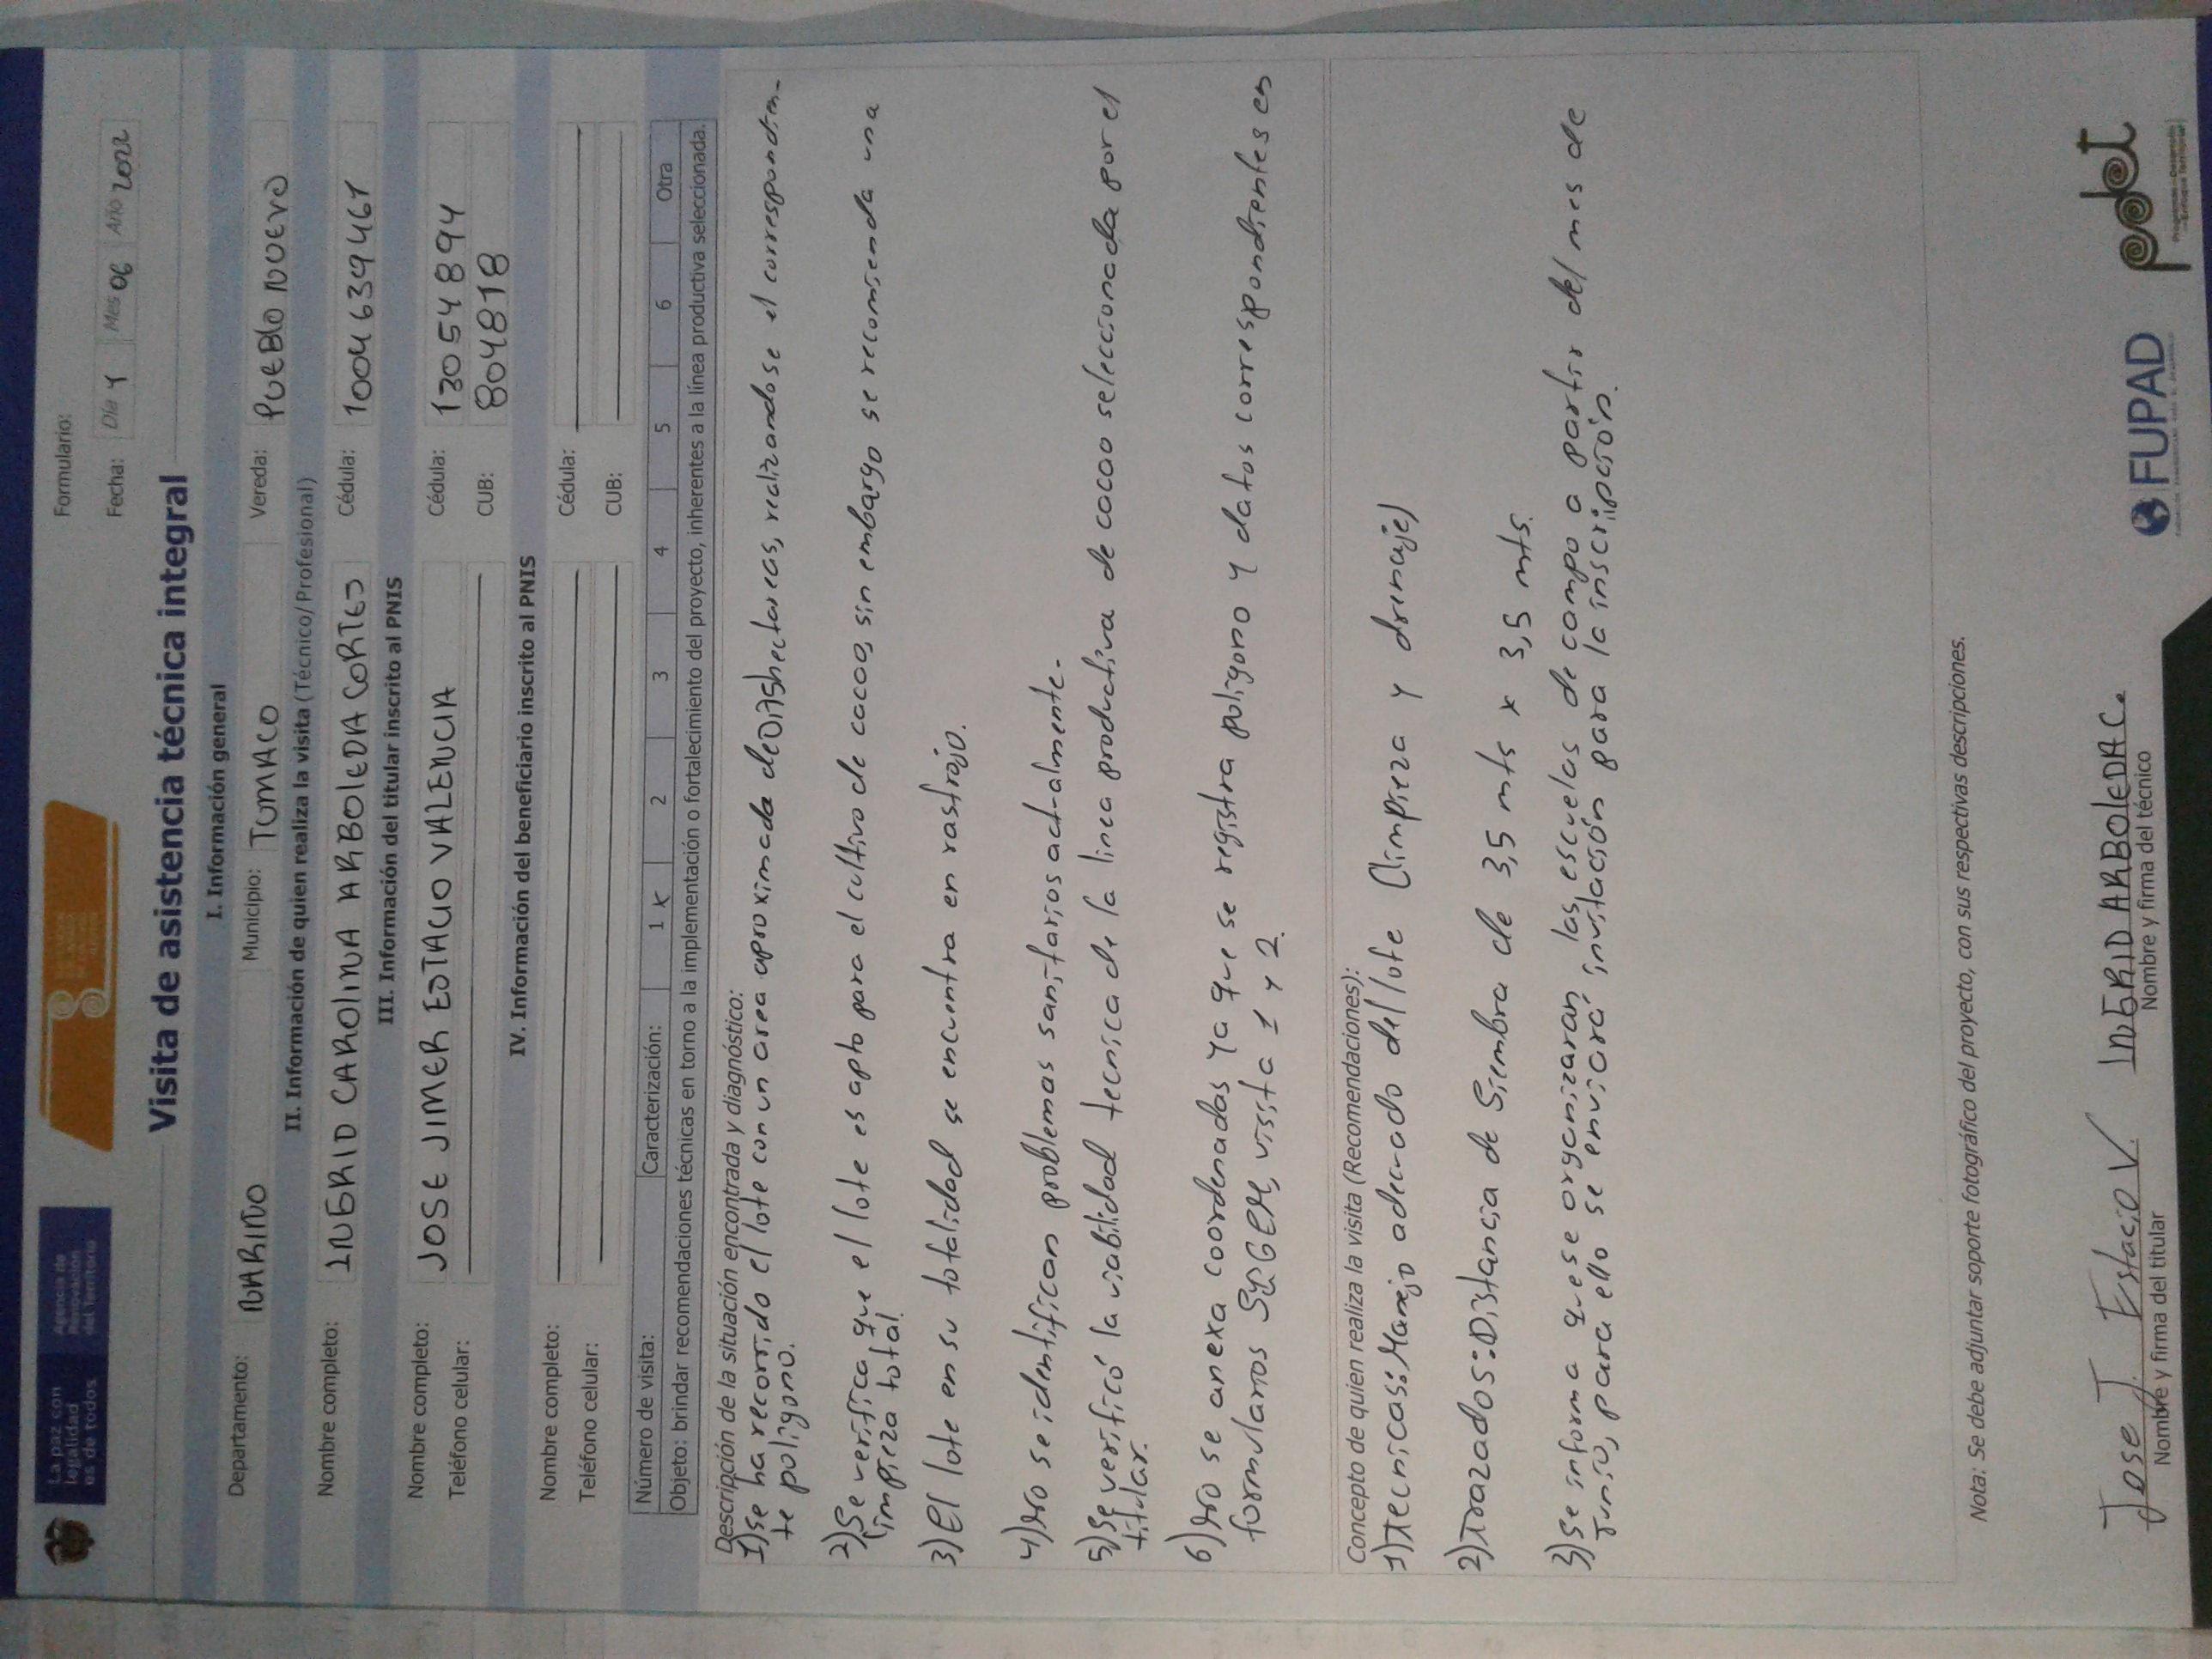 La paz con
legalidad
es de todos
Agencia de
Renovación
del Territorio
Formulario:
Fecha: Día 1 Mes 06 Año 2022
Visita de asistencia técnica integral
I. Información general
Departamento: NARIÑO Municipio: TUMACO Vereda: PUEBLO NUEVO
II. Información de quien realiza la visita (Técnico/ Profesional)
Nombre completo: INGRID CAROLINA ARBOLEDA CORTES Cédula: 1004639461
III. Información del titular inscrito al PNIS
Nombre completo: JOSE JIMER ESTACIO VALENCIA Cédula: 13054894
Teléfono celular: CUB: 8048818
IV. Información del beneficiario inscrito al PNIS
Nombre completo: Cédula:
Teléfono celular: CUB:
Número de visita: Caracterización: 1 X 2 3 4 5 6 Otra
Objeto: brindar recomendaciones técnicas en torno a la implementación o fortalecimiento del proyecto, inherentes a la línea productiva seleccionada.
Descripción de la situación encontrada y diagnóstico:
1) Se ha recorrido el lote con un area aproximada de hectareas, realizandose el correspondien-
te poligono.
2) Se verifica que el lote es apto para el cultivo de cacao, sin embargo se recomienda una
limpieza total.
3) El lote en su totalidad se encuentra en rastrojo.
4) No se identifican problemas sanitarios actualmente.
5) Se verificó la viabilidad tecnica de la linea productiva de cacao seleccionada por el
titular.
6) No se anexa coordenadas ya que se registra poligono y datos correspondientes en
formularios SYGEP, visita 1 y 2.
Concepto de quien realiza la visita (Recomendaciones):
1) Tecnicas: Manejo adecuado del lote (limpieza y drenaje)
2) Trazados: Distancia de Siembra de 3,5 mts x 3,5 mts.
3) Se informa que se organizaran las escuelas de campo a partir del mes de
Junio, para ello se enviará invitación para la inscripción.
Nota: Se debe adjuntar soporte fotográfico del proyecto, con sus respectivas descripciones.
Jose J. Estacio V.
Nombre y firma del titular
INGRID ARBOLEDA C.
Nombre y firma del técnico
FUPAD
pdet